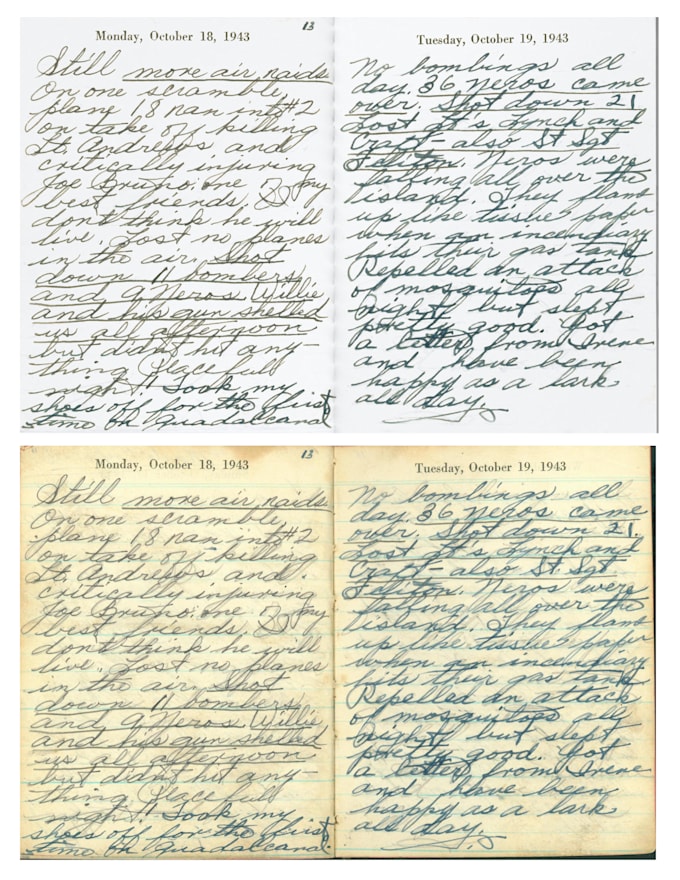 13
Monday, October 18, 1943
Still more air raids
On one scramble,
plane 18 ran into #2
on take off killing
Lt. Andrews and
critically injuring
Joe Bruno: one of my
best friends. I
don't think he will
live. Lost no planes
in the air. Shot
down 11 bombers
and 9 Neros. Willie
and his gun shelled
us all afternoon
but didn't hit any-
thing. Peacefull
night! Took my
shoes off for the first
time on Guadalcanal
Tuesday, October 19, 1943
No bombings all
day. 36 Neros came
over. Shot down 21
Lost Lt's Lynch and
Craft - also St Sgt
Neros were
falling all over the
island. They flame
up like tissue paper
when an incendiary
hits their gas tank
Repelled an attack
of mosquitoes all
night but slept
pretty good. Got
a letter from Irene
and have been
happy as a lark
all day.
13
Monday, October 18, 1943
Still more air raids
On one scramble,
plane 18 ran into #2
on take off killing
Lt. Andrews and
critically injuring
Joe Bruno: one of my
best friends. I
don't think he will
live. Lost no planes
in the air. Shot
down 11 bombers
and 9 Neros. Willie
and his gun shelled
us all afternoon
but didn't hit any-
thing. Peacefull
night! Took my
shoes off for the first
time on Guadalcanal.
Tuesday, October 19, 1943
No bombings all
day. 36 Neros came
over. Shot down 21.
Lost Lt's Lynch and
Craft - also St. Sgt
Neros were
falling all over the
island. They flame
up like tissue paper
when an incendiary
hits their gas tank
Repelled an attack
of mosquitoes all
night but slept
pretty good. Got
a letter from Irene
and have been
happy as a lark
all day.